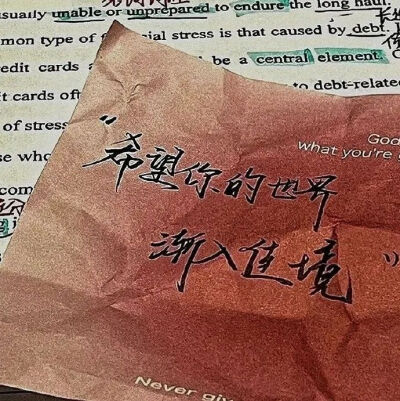 usually unable or unprepared to endure the long haul.
mon type of financial stress is that caused by debt.
edit cards a
be a central element.
t cards oft
to debt-relate
of stress
se who
com
God
what you're
"希望你的世界
渐入佳境"
Never giv